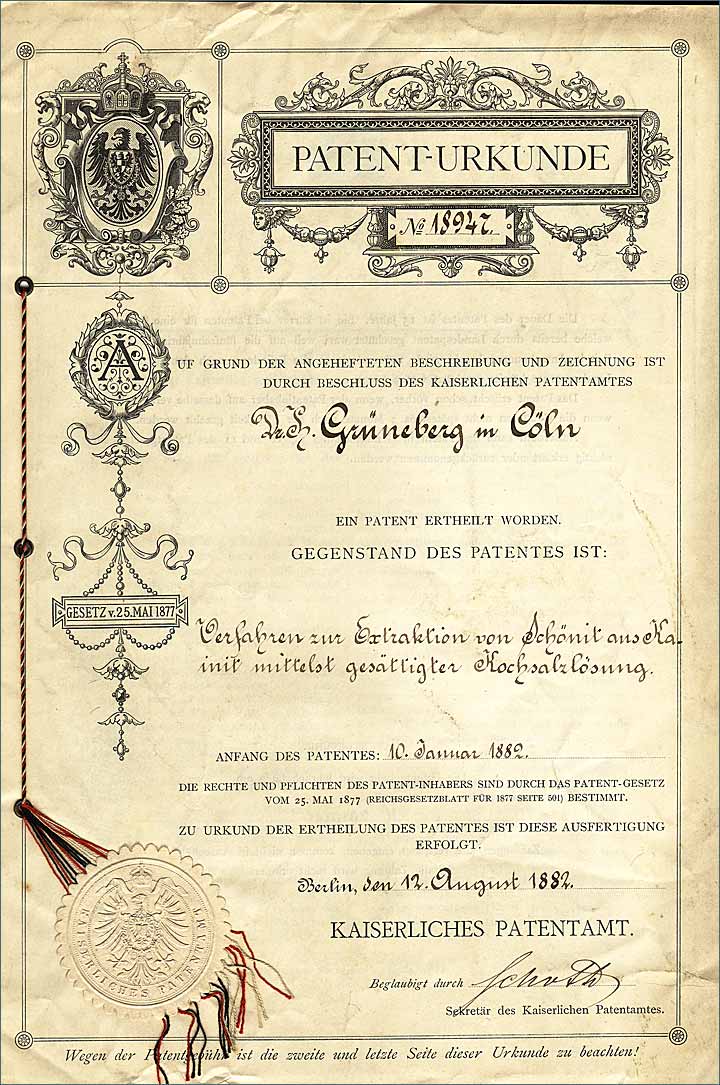 PATENT-URKUNDE
No 18947.
AUF GRUND DER ANGEHEFTETEN BESCHREIBUNG UND ZEICHNUNG IST
DURCH BESCHLUSS DES KAISERLICHEN PATENTAMTES
Dr. H. Grüneberg in Cöln
EIN PATENT ERTHEILT WORDEN.
GEGENSTAND DES PATENTES IST:
GESETZ v. 25. MAI 1877
Verfahren zur Extraktion von Schönit aus Ka-
init mittelst gesättigter Kochsalzlösung.
ANFANG DES PATENTES: 10. Januar 1882.
DIE RECHTE UND PFLICHTEN DES PATENT-INHABERS SIND DURCH DAS PATENT-GESETZ
VOM 25. MAI 1877 (REICHSGESETZBLATT FÜR 1877 SEITE 501) BESTIMMT.
ZU URKUND DER ERTHEILUNG DES PATENTES IST DIESE AUSFERTIGUNG
ERFOLGT.
Berlin, den 12. August 1882.
KAISERLICHES PATENTAMT.
KAISERLICHES PATENTAMT
Beglaubigt durch
Sekretär des Kaiserlichen Patentamtes.
Wegen der Patentgebühr ist die zweite und letzte Seite dieser Urkunde zu beachten!